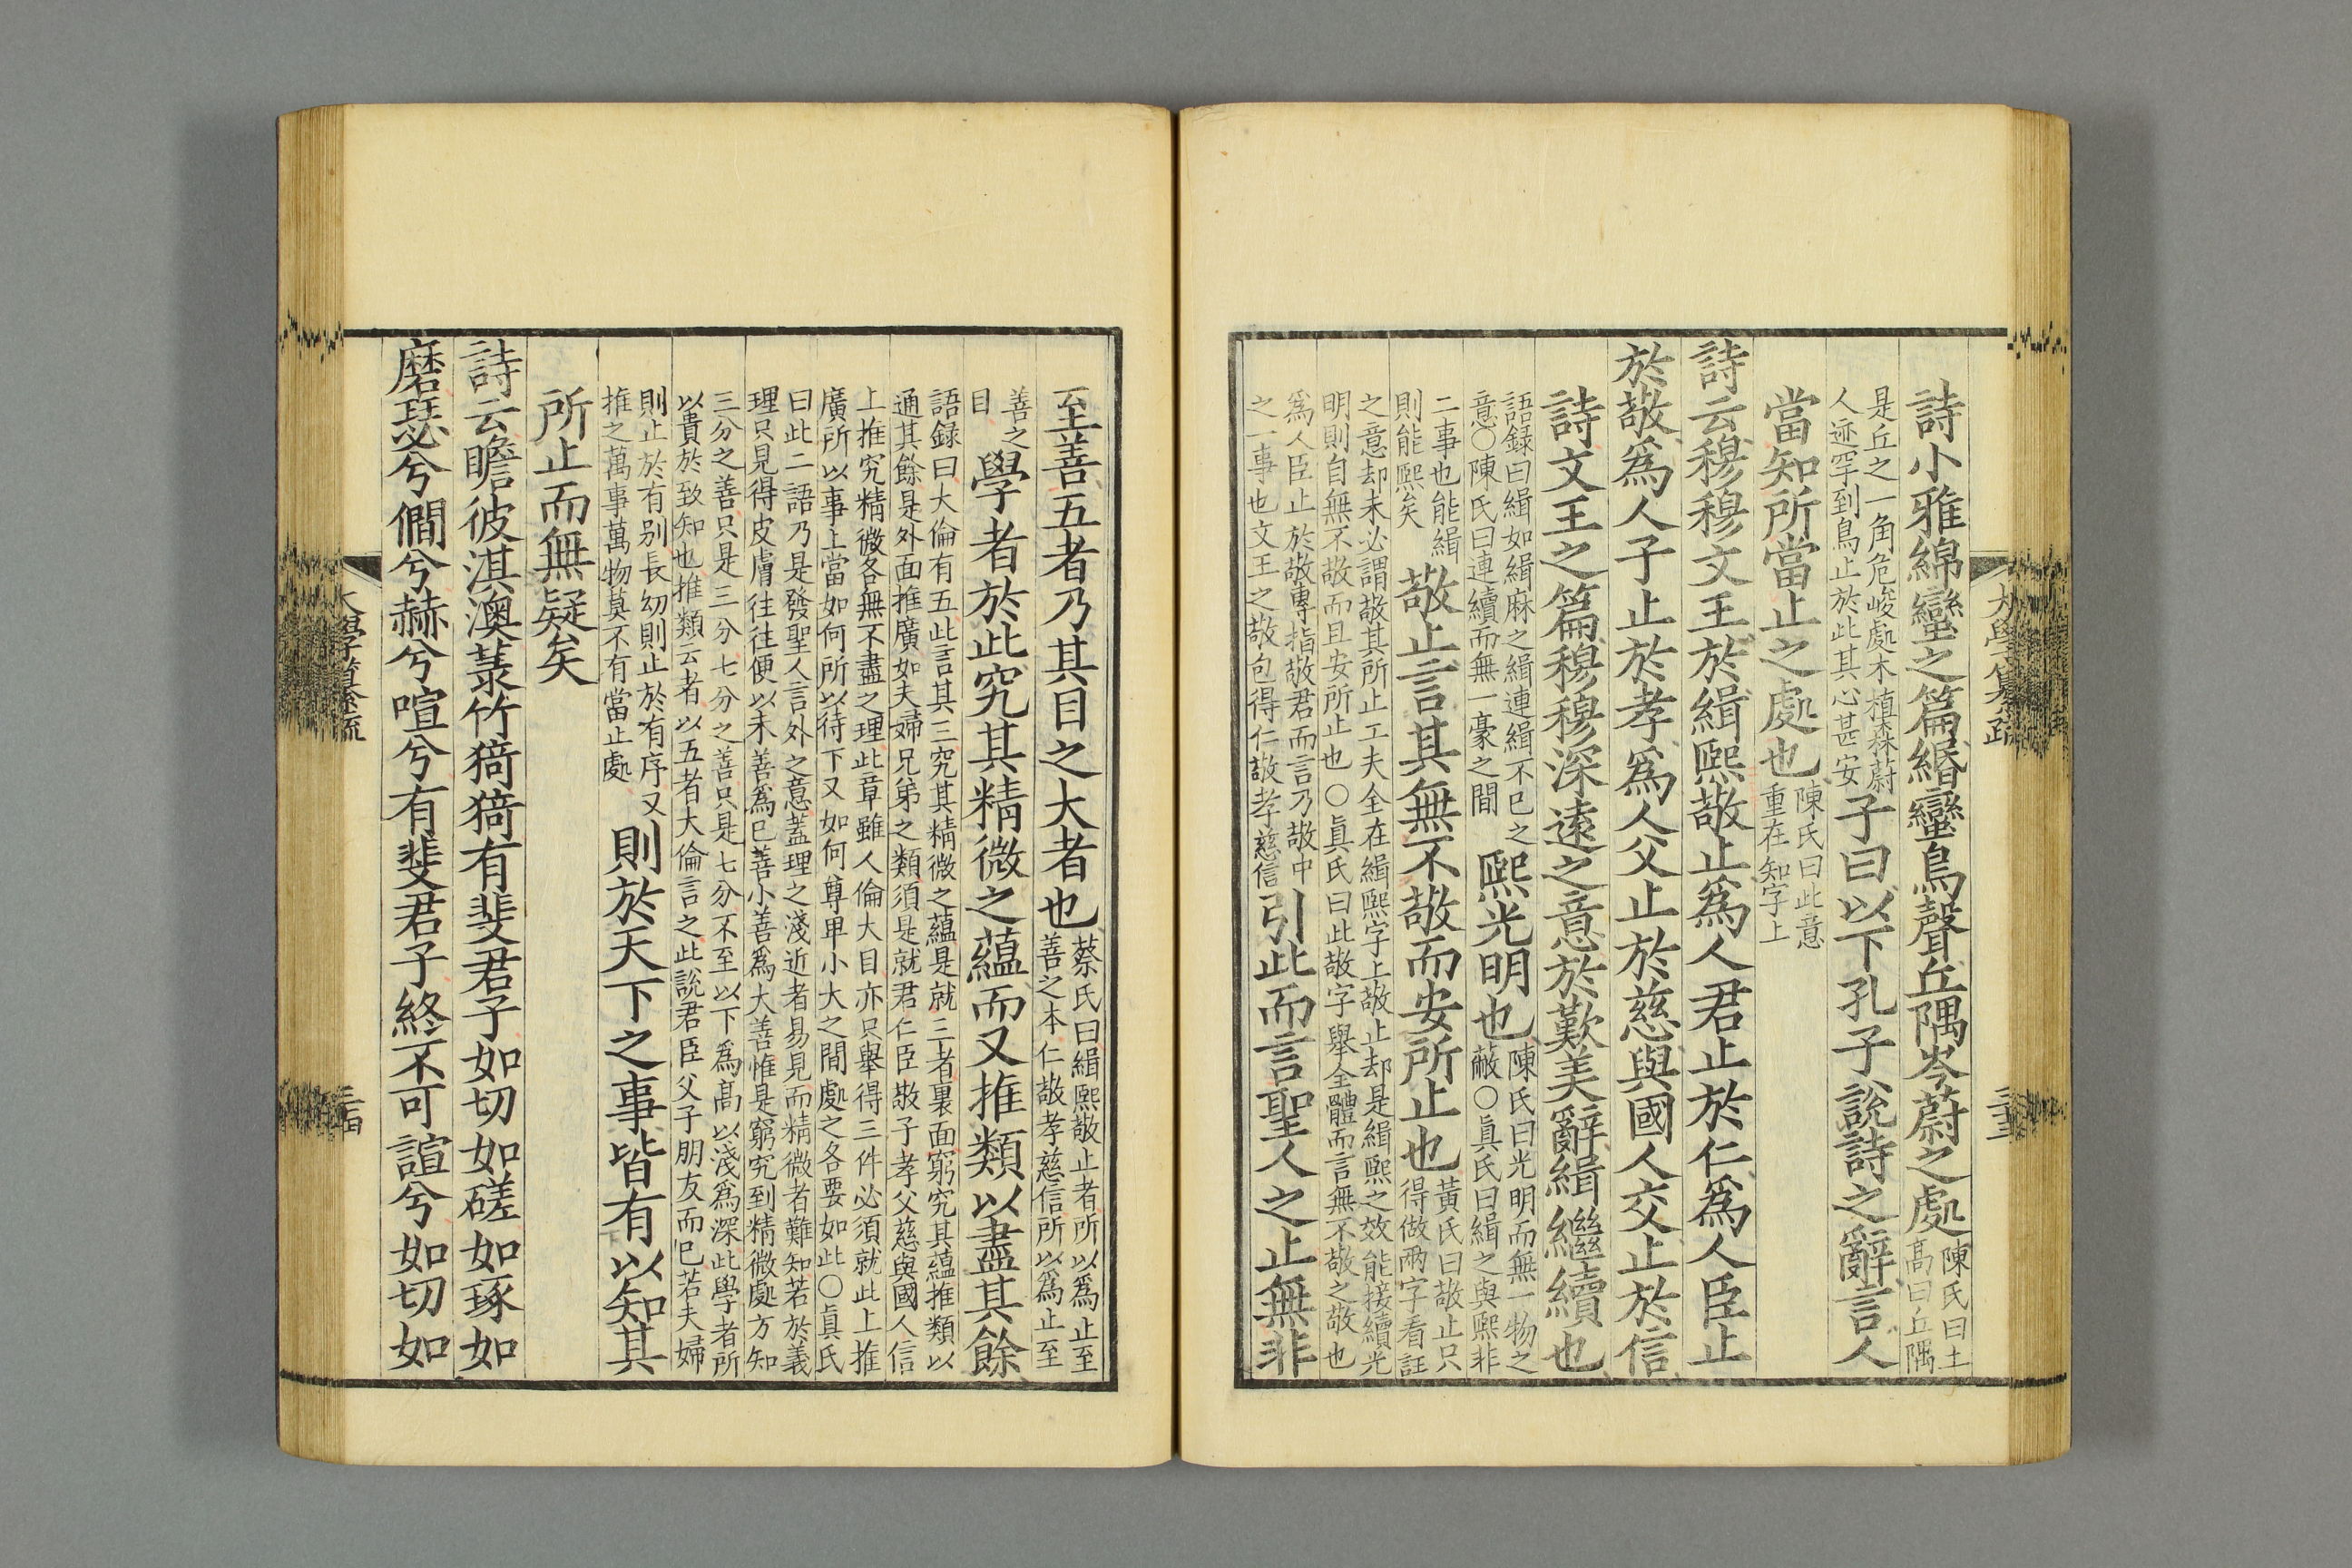 詩小雅綿蠻之篇緡蠻鳥聲丘隅岑蔚之處陳氏曰土
高曰丘隅
是丘之一角危峻處木植森蔚
人迹罕到鳥止於此其心甚安子曰以下孔子說詩之辭言人
當知所當止之處也陳氏曰此意
重在知字上
詩云穆穆文王於緝熙敬止爲人君止於仁爲人臣止
於敬爲人子止於孝爲人父止於慈與國人交止於信
詩文王之篇穆穆深遠之意於歎美辭緝繼續也
語録曰緝如緝麻之緝連緝不已之
意〇陳氏曰連續而無一豪之間熙光明也陳氏曰光明而無一物之
蔽〇眞氏曰緝之與熙非
二事也能緝
則能熙矣敬止言其無不敬而安所止也黃氏曰敬止只
得做兩字看註
之意却未必謂敬其所止工夫全在緝熙字上敬止却是緝熙之效能接續光
明則自無不敬而且安所止也〇眞氏曰此敬字舉全體而言無不敬之敬也
爲人臣止於敬專指敬君而言乃敬中
之一事也文王之敬包得仁敬孝慈信引此而言聖人之止無非
大學纂疏
三十三
至善五者乃其目之大者也蔡氏曰緝熙敬止者所以爲止至
善之本仁敬孝慈信所以爲止至
善之
目學者於此究其精微之蘊而又推類以盡其餘
語録曰大倫有五此言其三究其精微之蘊是就三者裏面窮究其蘊推類以
通其餘是外面推廣如夫婦兄弟之類須是就君仁臣敬子孝父慈與國人信
上推究精微各無不盡之理此章雖人倫大目亦只舉得三件必須就此上推
廣所以事上當如何所以待下又如何尊卑小大之間處之各要如此〇眞氏
曰此二語乃是發聖人言外之意蓋理之淺近者易見而精微者難知若於義
理只見得皮膚往往便以未善爲已善小善爲大善惟是窮究到精微處方知
三分之善只是三分七分之善只是七分不至以下爲高以淺爲深此學者所
以貴於致知也推類云者以五者大倫言之此說君臣父子朋友而已若夫婦
則止於有別長幼則止於有序又
推之萬事萬物莫不有當止處則於天下之事皆有以知其
所止而無疑矣
詩云瞻彼淇澳菉竹猗猗有斐君子如切如磋如琢如
磨瑟兮僩兮赫兮喧兮有斐君子終不可諠兮如切如
大學纂疏
三十四